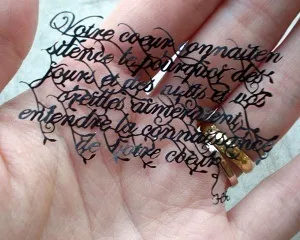 Votre coeur connait en
silence les pourquoi des
jours et des nuits et vos
oreilles aimeraient
entendre la connaissance
de votre coeur